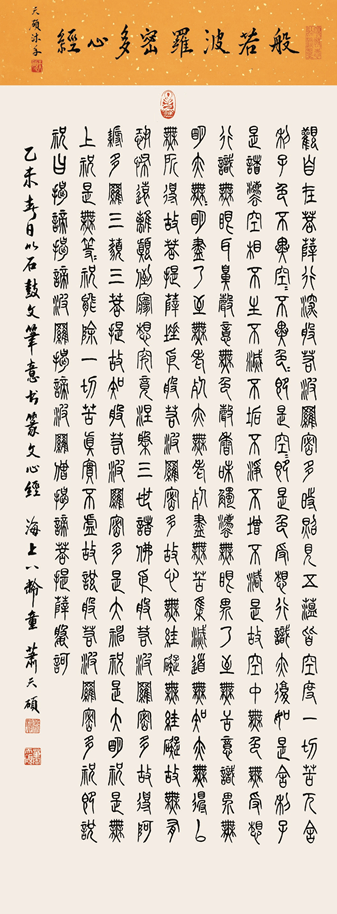 般若波羅密多心經
天碩沐手
觀自在菩薩行深般若波羅密多時照見五蘊皆空度一切苦厄舍
利子色不異空空不異色色即是空空即是色受想行識亦復如是舍利子
是諸灋空相不生不滅不垢不淨不增不減是故空中無色無受想
行識無眼耳鼻舌身意無色聲香味觸灋無眼界乃至無意識界無
明亦無無明盡乃至無老死亦無老死盡無苦集滅道無知亦無得以
無所得故菩提薩埵依般若波羅密多故心無罣礙無罣礙故無有
恐怖遠離顛倒夢想究竟涅槃三世諸佛依般若波羅密多故得阿
耨多羅三藐三菩提故知般若波羅密多是大神祝是大明祝是無
上祝是無等等祝能除一切苦真實不虛故說般若波羅密多祝即說
祝曰揭諦揭諦波羅揭諦波羅僧揭諦菩提薩婆訶
乙未春日以石鼓文筆意書篆文心經 海上八齡童 蕭天碩